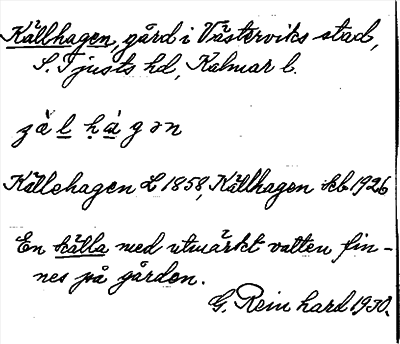 Källhagen, gård i Västerviks stad,
S. Tjusts hd, Kalmar l.
Källehagen L 1858, Källhagen skb 1926
En källa med utmärkt vatten fin-
nes på gården.
G. Reinhard 1930.